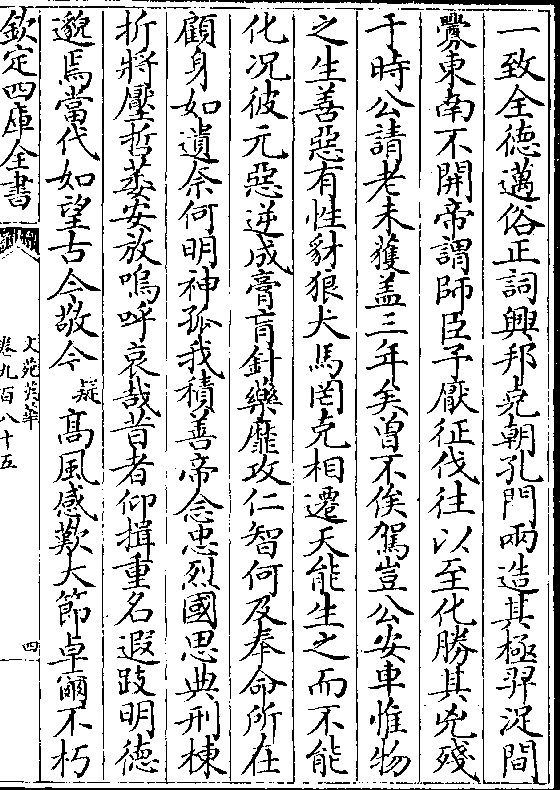 一致全德邁俗正詞興邦堯朝孔門兩造其極羿浞間
釁東南不開帝謂師臣予厭征伐往以至化勝其兇殘
于時公請老未獲盖三年矣曾不俟駕豈公安車惟物
之生善惡有性豺狼犬馬罔克相遷天能生之而不能
化况彼元惡逆成膏肓針藥靡攻仁智何及奉命所在
顧身如遺奈何明神孤我積善帝念忠烈國思典刑棟
折將壓哲萎安放嗚呼哀哉昔者仰揖重名遐跂明德
邈焉當代如望古今敬今疑髙風感歎大節卓爾不朽
欽定四庫全書
文苑英華
卷九百八十五
四